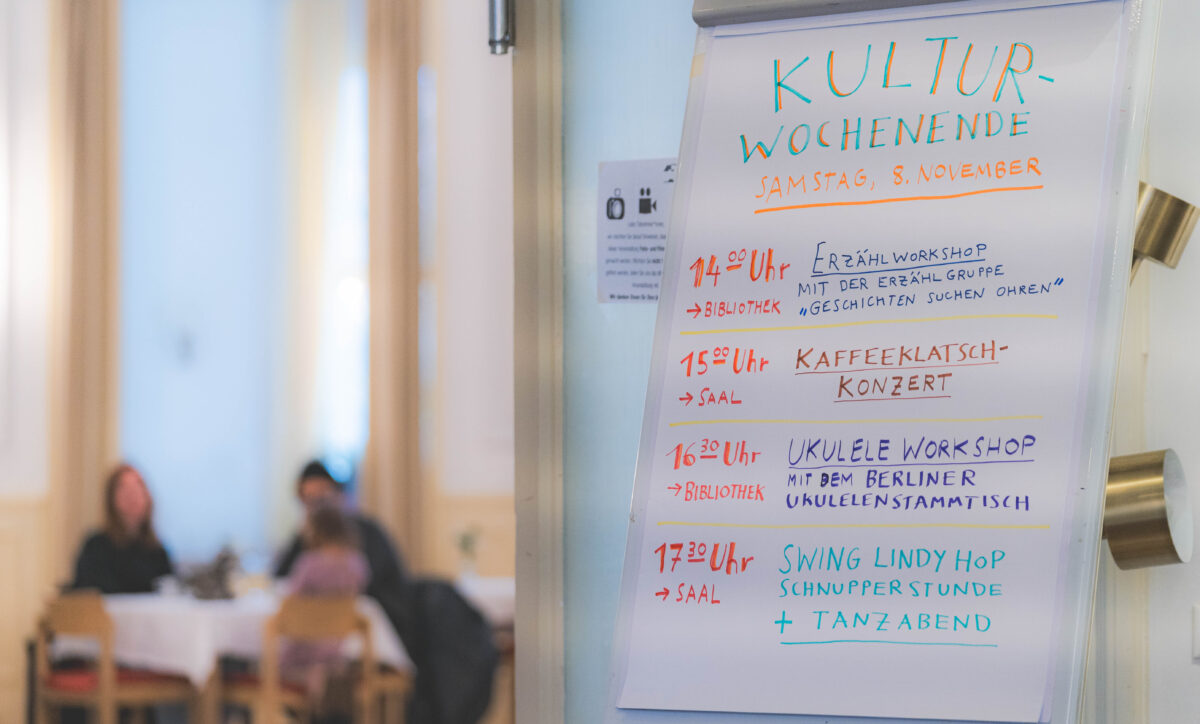 KULTUR-
WOCHENENDE
SAMSTAG, 8. NOVEMBER
14⁰⁰ Uhr
→ BIBLIOTHEK
ERZÄHLWORKSHOP
MIT DER ERZÄHLGRUPPE
„GESCHICHTEN SUCHEN OHREN"
15⁰⁰ Uhr
→ SAAL
KAFFEEKLATSCH-
KONZERT
16³⁰ Uhr
→ BIBLIOTHEK
UKULELE WORKSHOP
MIT DEM BERLINER
UKULELENSTAMMTISCH
17³⁰ Uhr
→ SAAL
SWING LINDY HOP
SCHNUPPERSTUNDE
+ TANZABEND